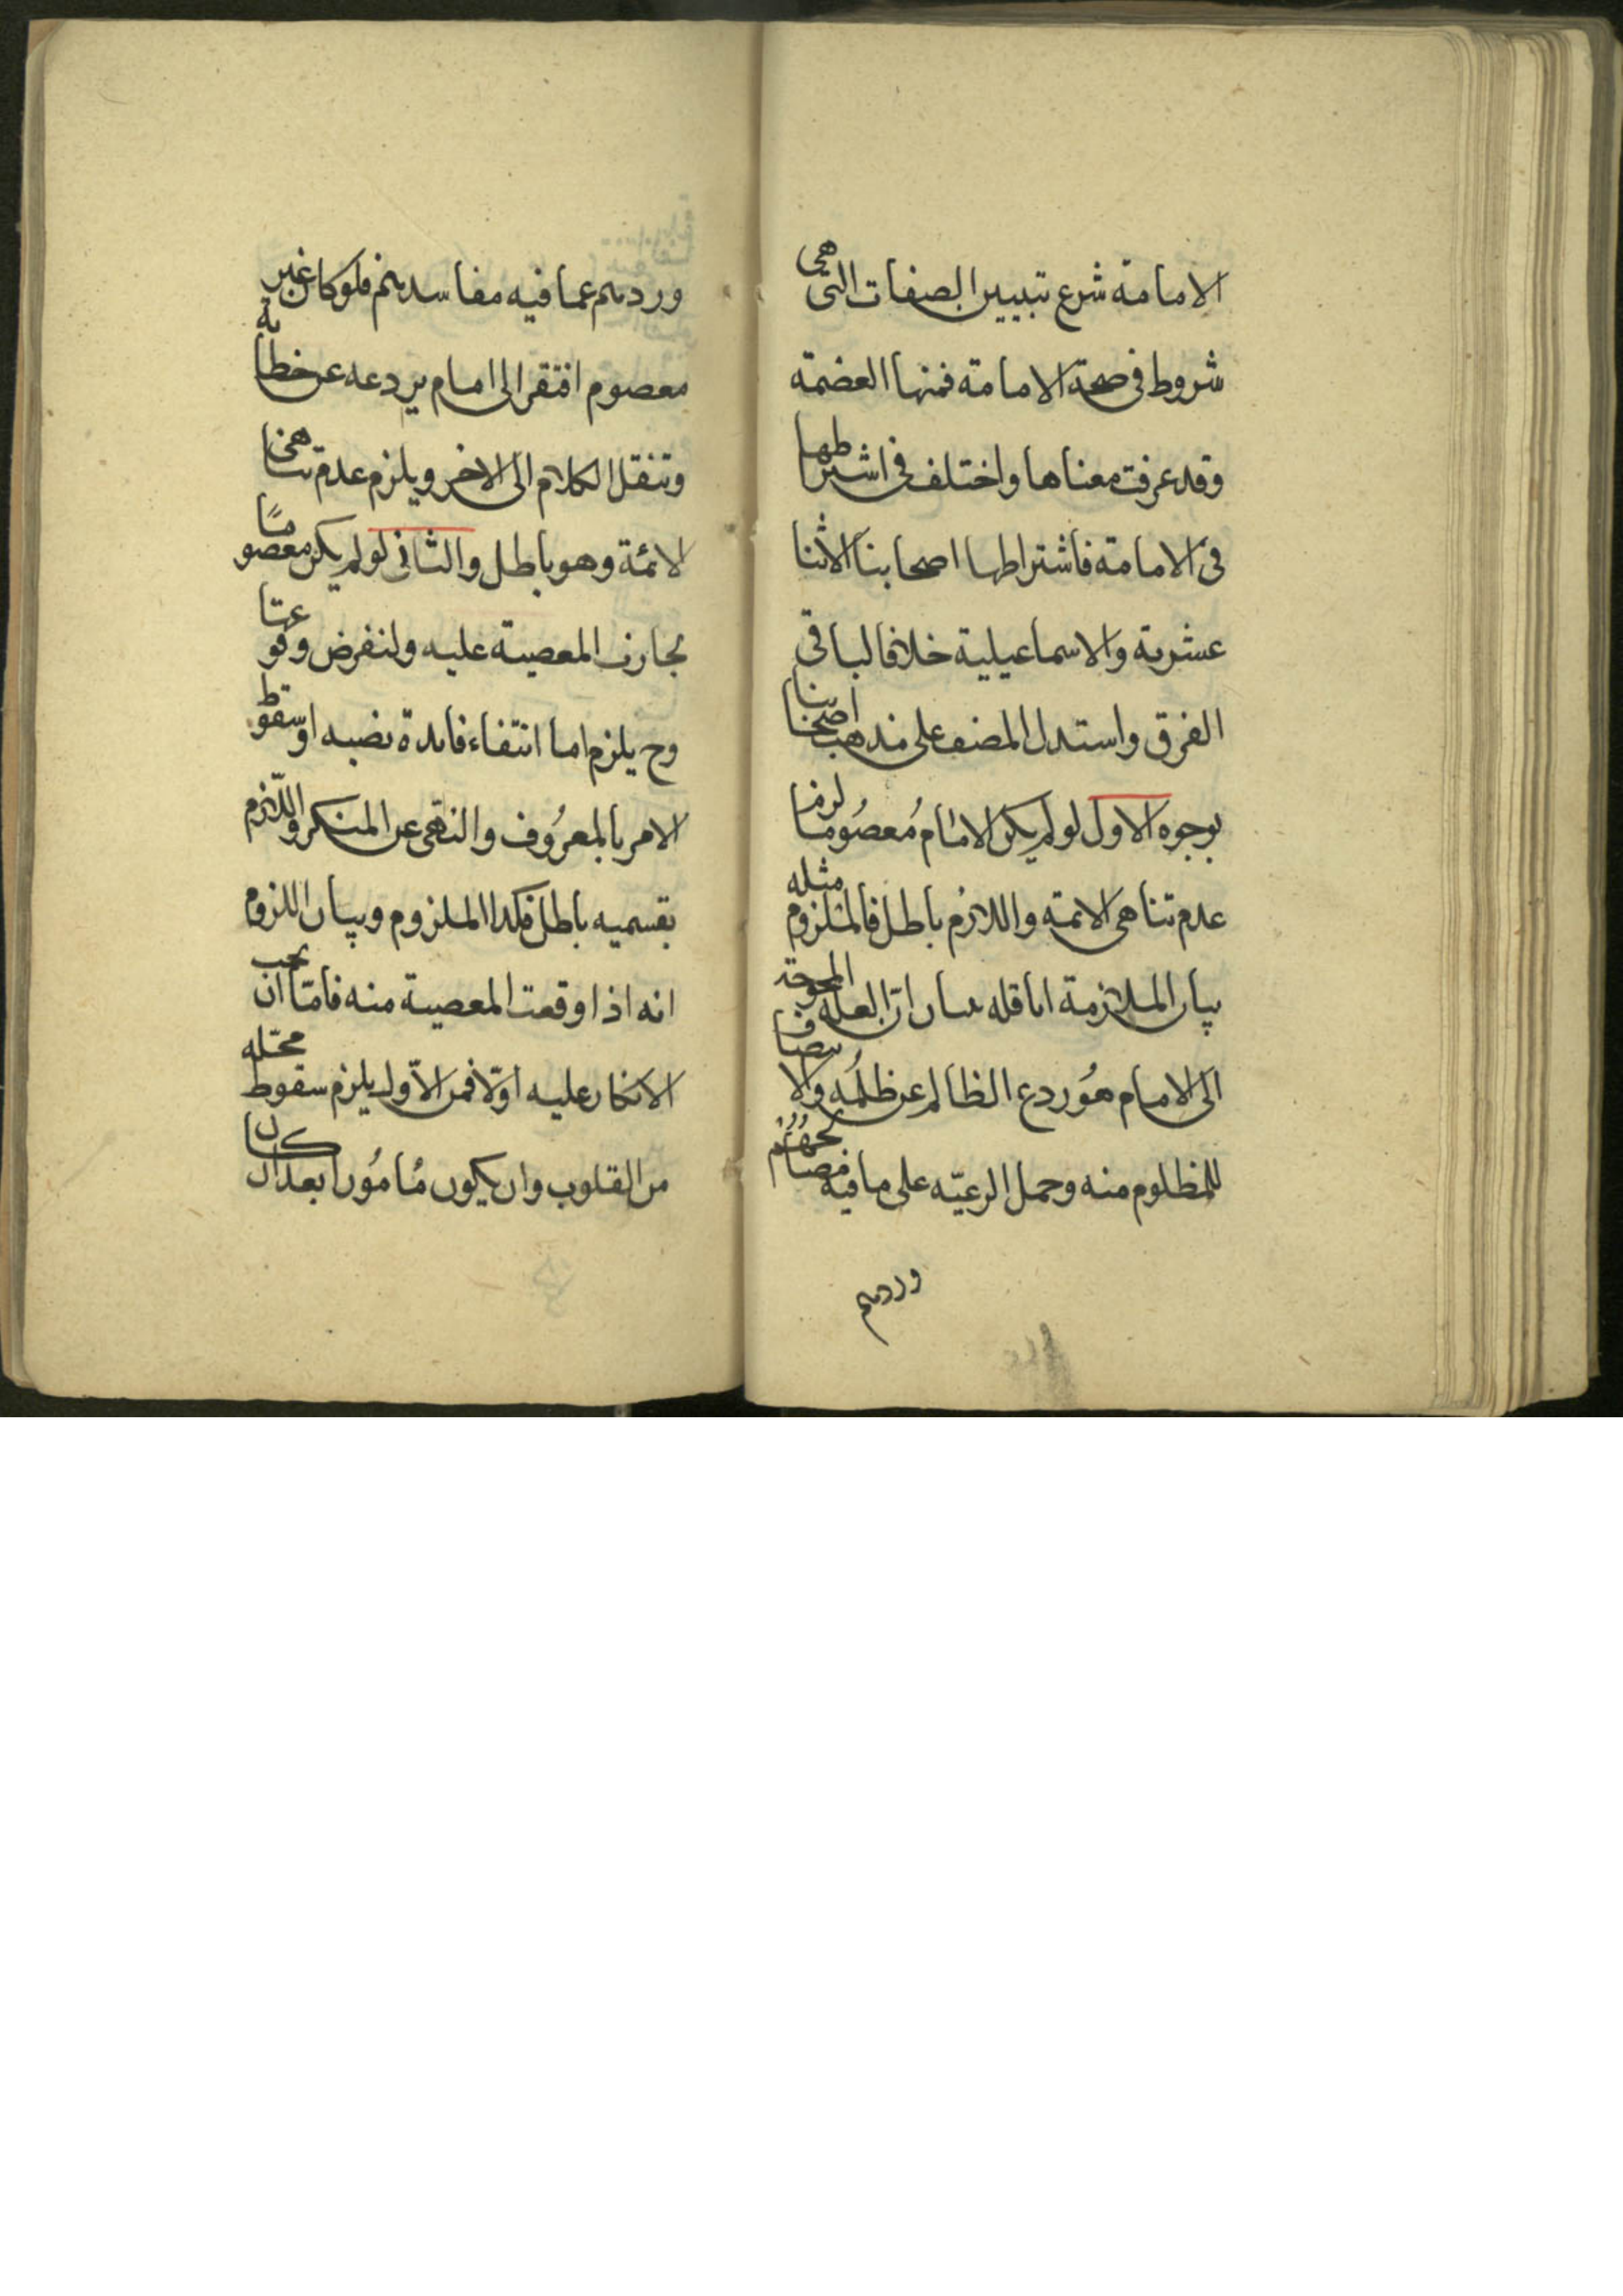 الامامة شرع تبيين الصفات التى هى
شروط فى صحة الامامة فمنها العضمة
وقد عرفت معناها واختلف فى اشتراطها
فى الامامة فاشتراطها اصحابنا الاثنا
عشرية والاسماعيلية خلافا لباقى
الفرق واستدل المصنف على مذهب اصحابنا
بوجوه الاول لو لم يكن الامام معصوما لزم
عدم تناهى الائمة واللازم باطل فالملزوم مثله
بيان الملازمة انا قد بينا ان العلة المحوجة
الى الامام هو ردع الظالم عن ظلمه والانتصاف
للمظلوم منه وحمل الرعيّه على ما فيه مصالحهم
وردهم
وردهم عما فيه مفاسدهم فلو كان غير
معصوم افتقر الى امام يردعه عن خطأه
وتنقل الكلام الى الاخر ويلزم عدم تناهى
الائمة وهو باطل والثانى لو لم يكن معصومًا
لجازت المعصية عليه ولنفرض وقوعها
وح يلزم اما انتفاء فايدة نصبه او سقوط
الامر بالمعرُوف والنهى عن المنكر واللّازم
بقسميه باطل فكذا الملزوم وبيان اللزوم
انه اذا وقعت المعصية منه فامّا ان يجب
الانكار عليه اولا فمن الاول يلزم سقوط محلّه
من القلوب وان يكون مُامُورا بعد ان كان